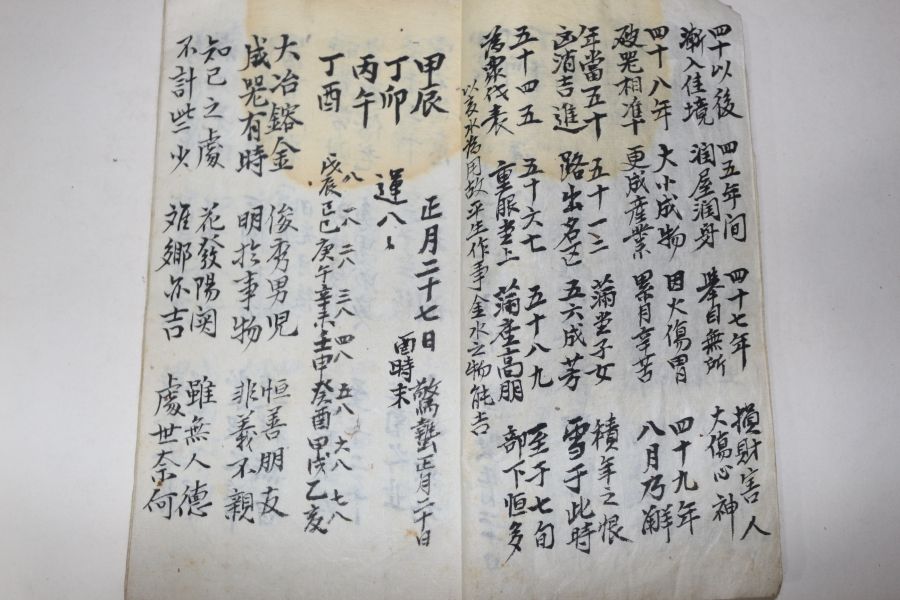 四十以後 四五年间 四十七年 損財害人
漸入佳境 润屋润身 舉目無所 大傷心神
四十八年 大小成物 因火傷胃 四十九年
破器相準 更成產業 累月辛苦 八月乃解
年當五十 五十一二 蒲堂子女 積年之恨
凶消吉進 路出名区 五六成芳 雪于此時
五十四五 五十六七 五十八九 至于七旬
為衆代表 重服堂上 蒲座高朋 部下恒多
以亥水為用故平生作事金水之物能吉
甲辰 正月二十七日 驚蟄正月二十日
丁卯 運八〻 酉時末
丙午
丁酉 八 一八 二八 三八 四八 五八 六八 七八
戊辰 己巳 庚午 辛未 壬申 癸酉 甲戌 乙亥
大冶鎔金 俊秀男児 恒善朋友
成器有時 明於事物 非義不親
知己之處 花發陽関 雖無人德
不計些少 难鄉亦吉 處世奈何